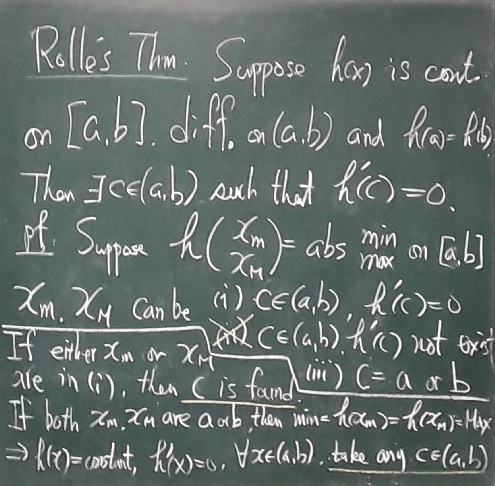 Rolle's Thm. Suppose h(x) is cont.
on [a,b]. diff. on (a,b) and h(a)=h(b)
Then ∃c∈(a,b) such that h'(c)=0.
pf. Suppose h(x_m x_M)= abs min max on [a,b]
x_m, x_M can be (i) c∈(a,b), h'(c)=0
(ii) c∈(a,b), h'(c) not exist
(iii) c= a or b
If either x_m or x_M
are in (i), then c is found.
If both x_m, x_M are a or b, then min= h(x_m)= h(x_M)=Max
⇒ h(x)=constant, h'(x)=0, ∀x∈(a,b). take any c∈(a,b)